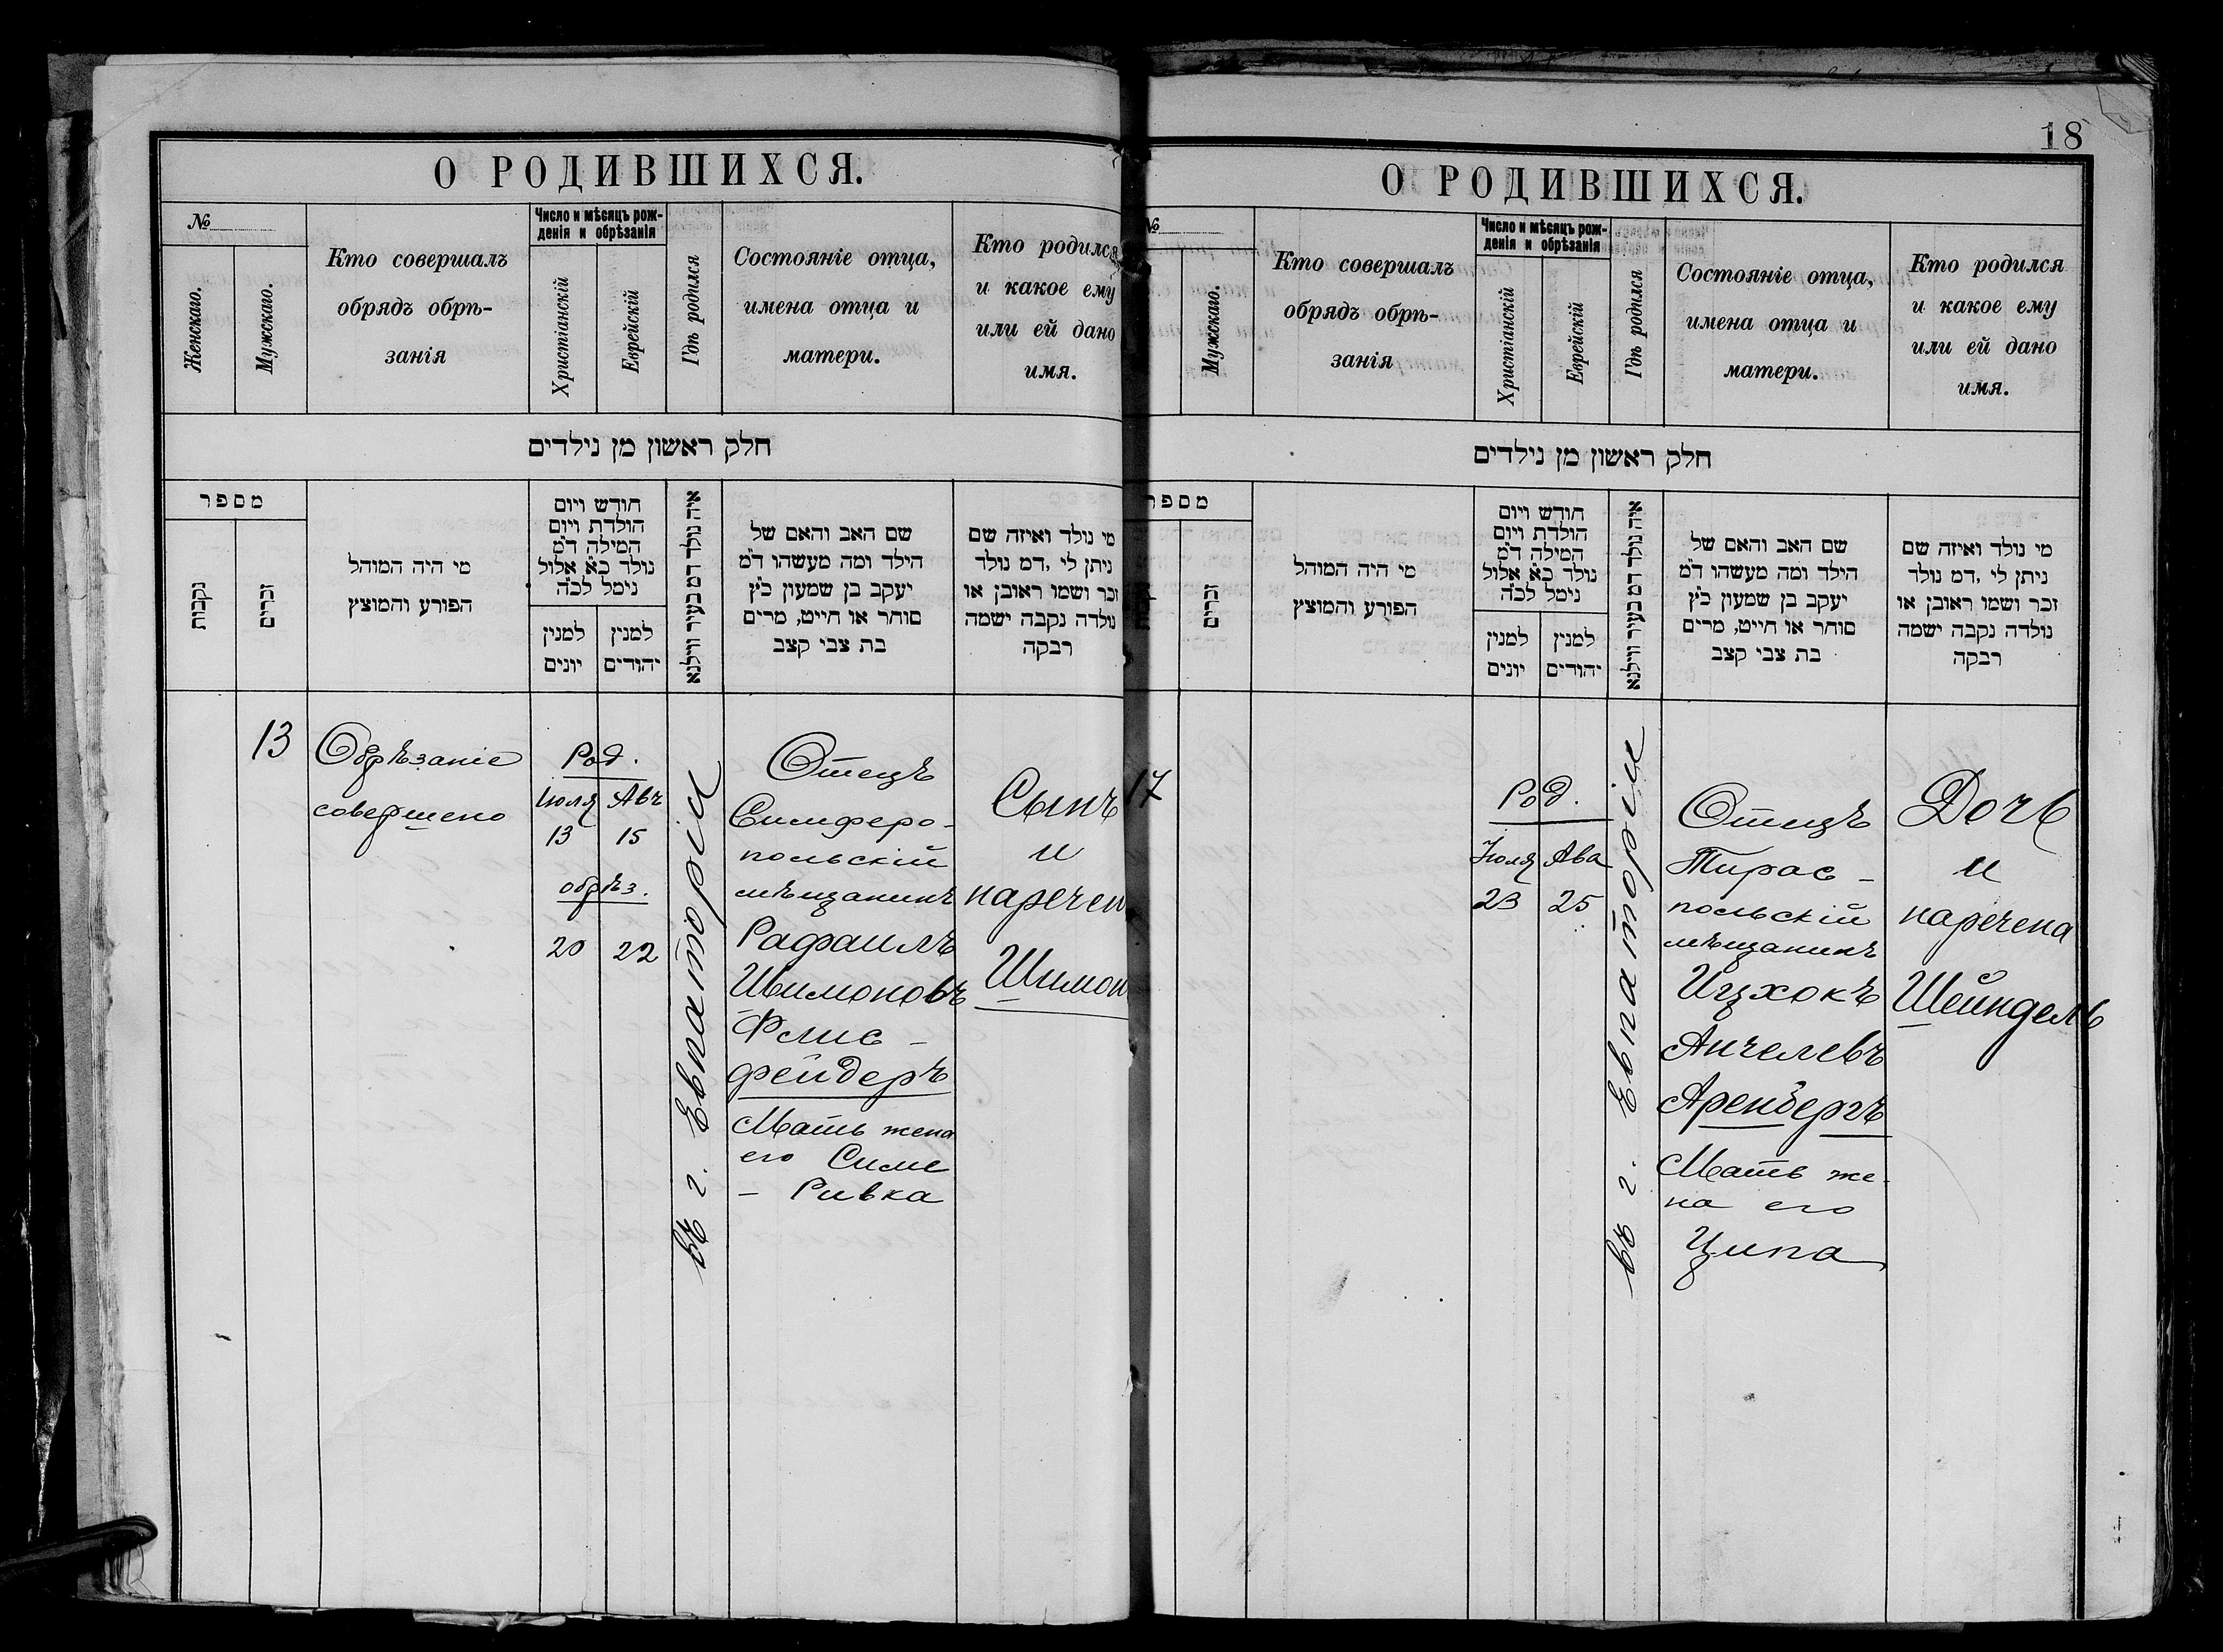 О РОДИВШИХСЯ.
№
Женскаго.
Мужскаго.
Кто совершалъ
обрядъ обрѣ-
занія
Число и мѣсяцъ рож-
денія и обрѣзанія
Христіанскій
Еврейскій
Гдѣ родился
Состояніе отца,
имена отца и
матери.
Кто родился
и какое ему
или ей дано
имя.
חלק ראשון מן נילדים
מספר
נקבות
זכרים
מי היה המוהל
הפורע והמוצץ
חודש ויום
הולדת ויום
המילה ד״מ
נולד כ״א אלול
נימל לכ״ה
למנין
יונים
למנין
יהודים
איה נולד דמ בעיר ווילנא
שם האב והאם של
הילד ומה מעשהו ד״מ
יעקב בן שמעון כ״ץ
סוחר או חייט, מרים
בת צבי קצב
מי נולד ואיזה שם
ניתן לי ,דמ נולד
זכר ושמו ראובן או
נולדה נקבה ישמה
רבקה
13
Обрѣзаніе
совершено
Род.
Іюля Авг
13 15
обрѣз.
20 22
въ г. Евпаторіи
Отецъ
Симферо-
польскій
мѣщанинъ
Рафаилъ
Шимоновъ
Флис-
фейдеръ
Мать жена
его Симе
- Ривка
Сынъ
и
наречен
Шимон
18
О РОДИВШИХСЯ.
№
Мужскаго.
Кто совершалъ
обрядъ обрѣ-
занія
Число и мѣсяцъ рож-
денія и обрѣзанія
Христіанскій
Еврейскій
Гдѣ родился
Состояніе отца,
имена отца и
матери.
Кто родился
и какое ему
или ей дано
имя.
חלק ראשון מן נילדים
מספר
זכרים
מי היה המוהל
הפורע והמוצץ
חודש ויום
הולדת ויום
המילה ד״מ
נולד כ״א אלול
נימל לכ״ה
למנין
יונים
למנין
יהודים
איה נולד דמ בעיר ווילנא
שם האב והאם של
הילד ומה מעשהו ד״מ
יעקב בן שמעון כ״ץ
סוחר או חייט, מרים
בת צבי קצב
מי נולד ואיזה שם
ניתן לי ,דמ נולד
זכר ושמו ראובן או
נולדה נקבה ישמה
רבקה
17
Род.
Іюля Ава
23 25
въ г. Евпаторіи
Отецъ
Тирас-
польскій
мѣщанинъ
Ицхокъ
Анчелевъ
Аренбергъ
Мать же-
на его
Ципа
Дочь
и
наречена
Шейндель